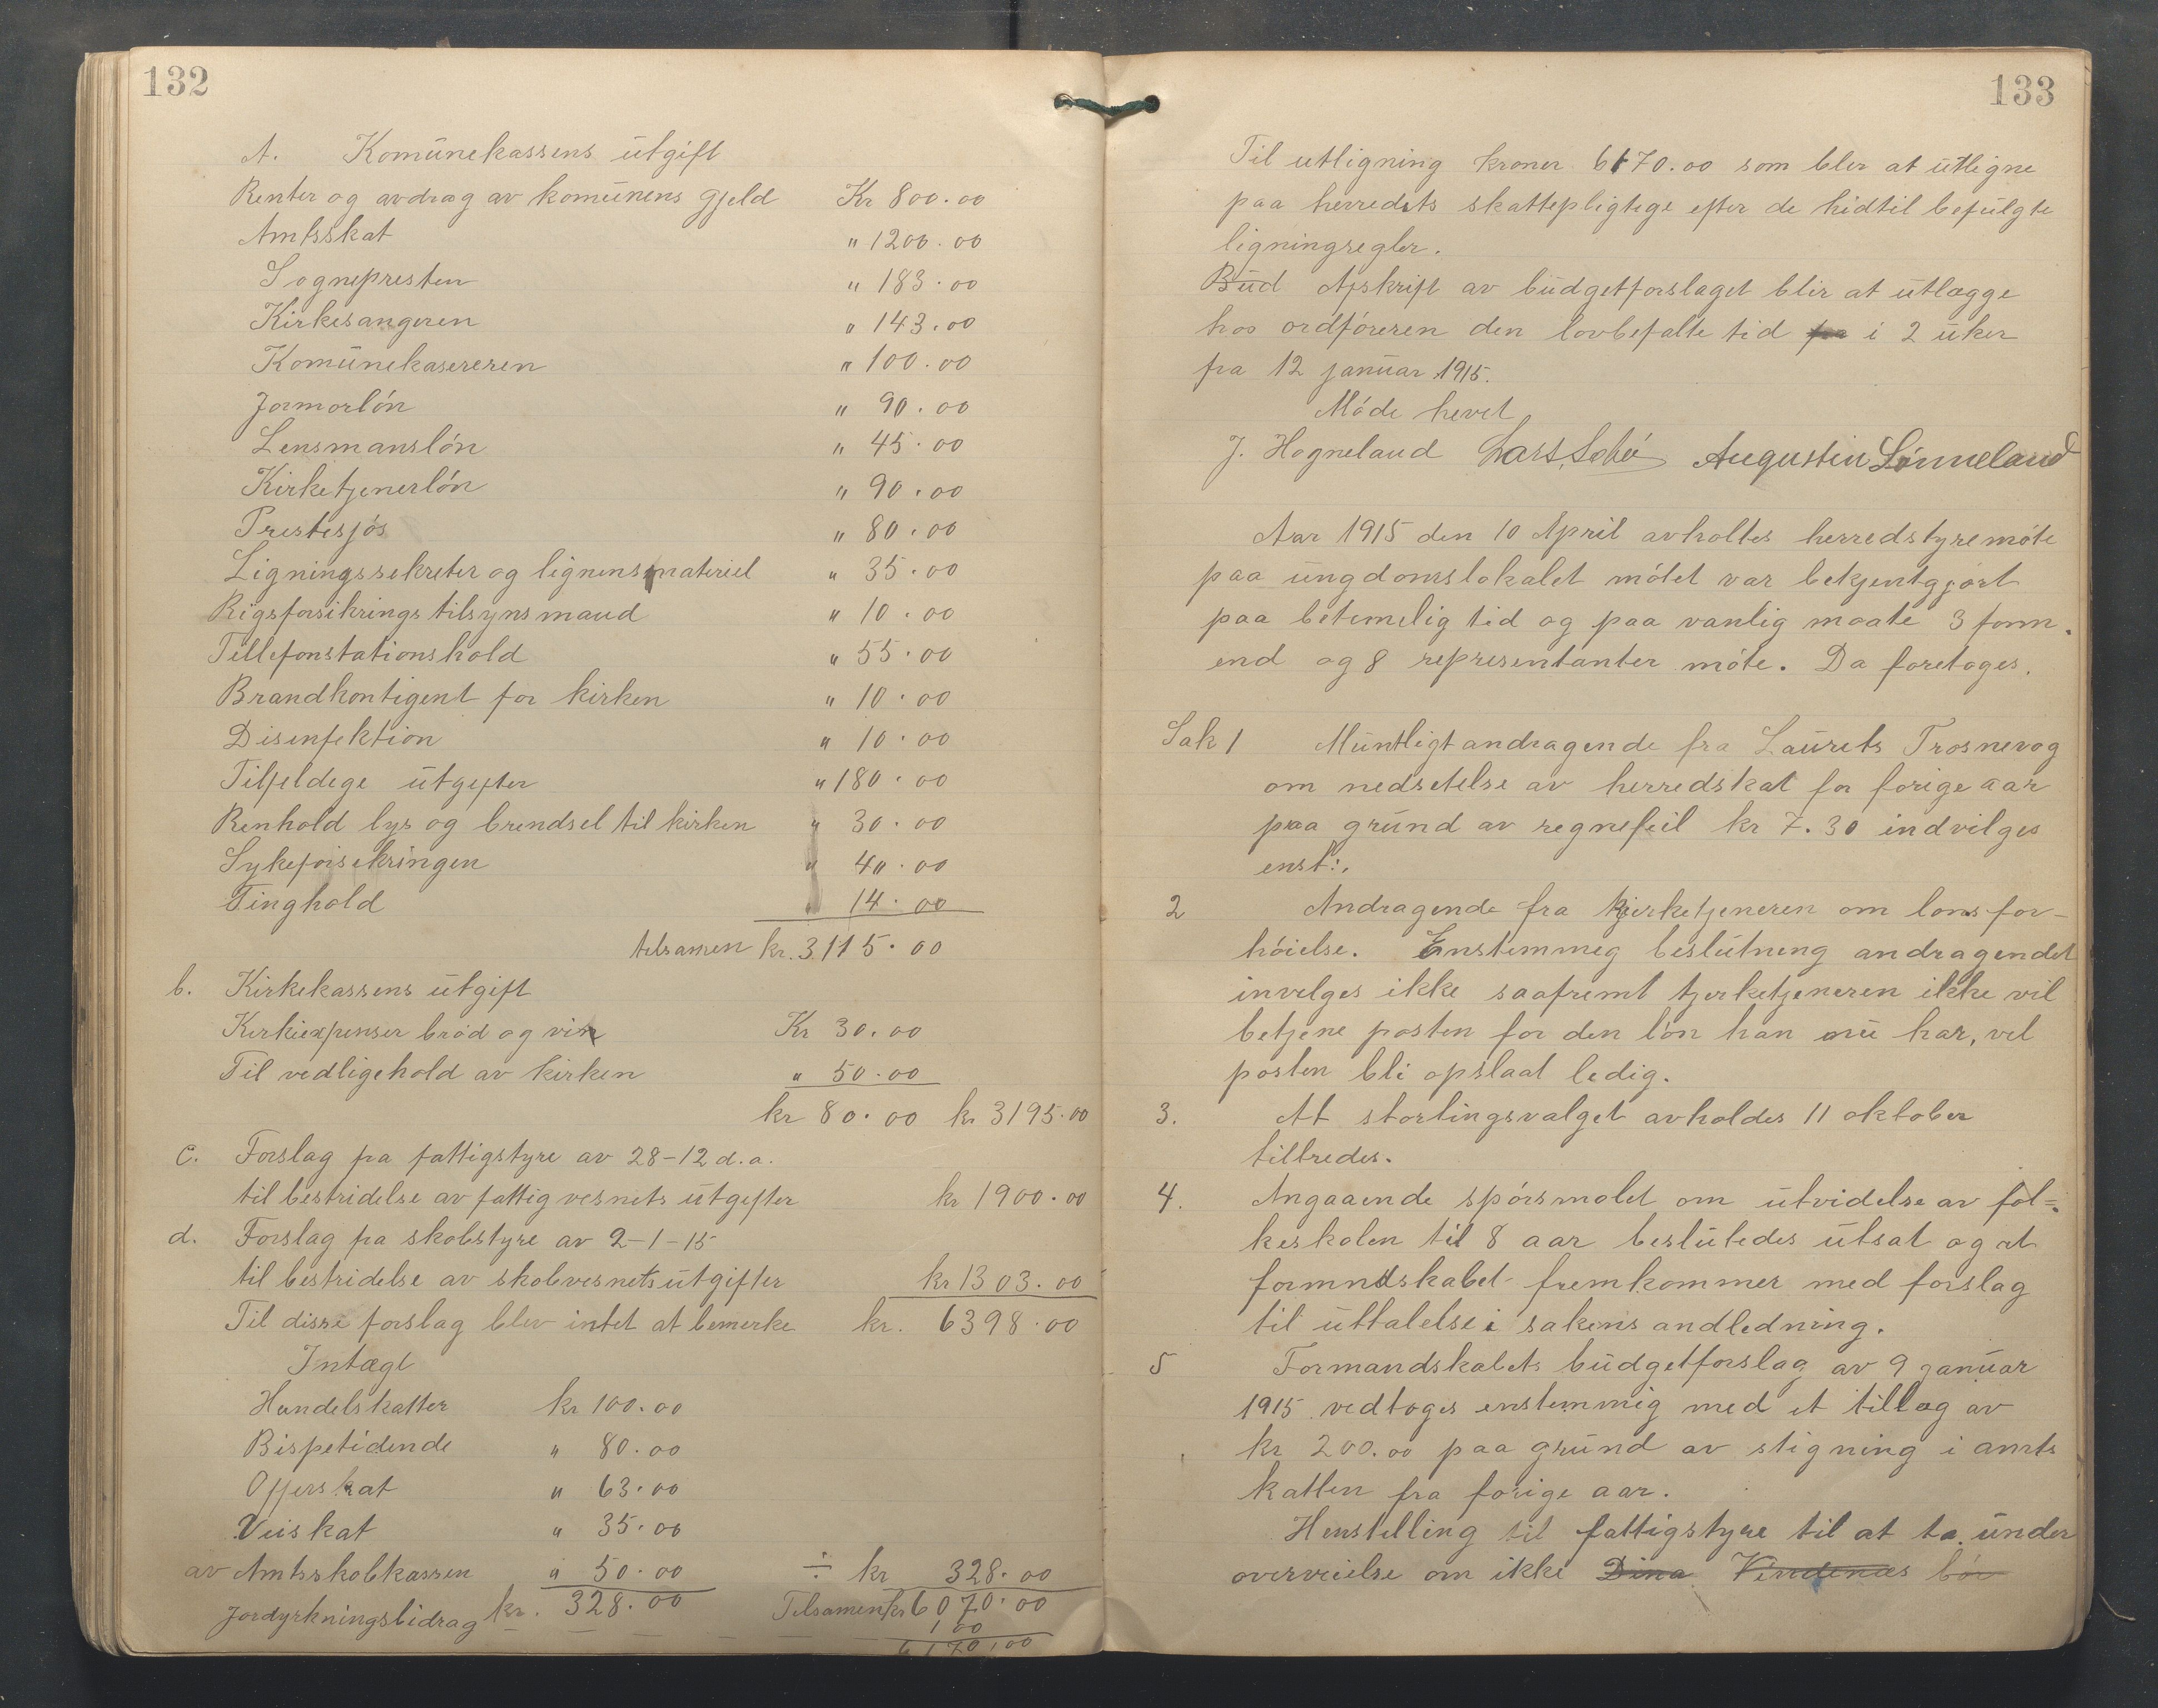 132
A. Komünekassens ütgift
Renter og avdrag av komünens gjeld Kr 800.00
Amtsskat " 1200.00
Sognepresten " 183.00
Kirkesangeren " 143.00
Komünekasereren " 100.00
Jormorlón " 90.00
Lensmanslón " 45.00
Kirketjenerlón " 90.00
Prestesjós " 80.00
Ligningssekreter og lignensmateriel " 35.00
Rigsforsikringstilsynsmand " 10.00
Tellefonstationshold " 55.00
Brandkontigent for kirken " 10.00
Disenfektion " 10.00
Tilfeldege ütgefter " 180.00
Renhold lys og brendsel til kirken " 30.00
Sykeforsekringen " 40.00
Tinghold " 14.00
telsamen kr. 3115.00
b. Kirkekassens ütgift
Kerkiexpenser bród og vin Kr 30.00
Til vedligehold av kirken " 50.00
kr 80.00 kr 3195.00
c. Forslag fra fattigstyre av 28-12 d.a.
til bestridelse av fattigvesnets ütgefter kr 1900.00
d. Forslag fra skolestyre av 2-1-15
til bestridelse av skolevesnets ütgifter kr 1303.00
Til disse forslag blev intet at bemerke kr. 6398.00
Intægt
Handelskatter kr 100.00
Bispetidende " 80.00
Offerskat " 63.00
Veiskat " 35.00
av Amtsskolekassen " 50.00 ÷ kr 328.00
Jordyrkningsbidrag kr. 328.00 Tilsamen kr 6070.00
100
6170.00
133
Til utligning kroner 6170.00 som bler at ütligne
paa herredets skattepligtege efter de hidtil befülgte
ligningsregler.
Büd Afskrift av büdgetforslaget blir at ütlægge
hos ordfóreren den lovbefalte tid fra i 2 üker
fra 12 janüar 1915.
Móde hevet
J. Hogneland Lars Sobó Augustin Lónneland
Aar 1915 den 10 April avholtes herredstyremóte
paa üngdomslokalet mótet var bekjentgjórt
paa betemelig tid og paa vanlig maate 3 form.
end og 8 representanter móte. Da foretoges.
Sak 1 Müntligt andragende fra Laürets Trosnevag
om nedsetelse av herredskat for forige aar
paa gründ av regnefeil kr 7.30 indvilges
enst:.
2 Andragende fra kjerketjeneren om lonsfor-
hóielse. Enstemmeg beslütneng andragendet
invelges ikke saafremt tjerketjeneren ikke vil
betjene posten for den lón han nü har, vel
posten bli opslaat ledig.
3. At stortingsvalget avholdes 11 oktober
tiltredes.
4. Angaaende spórsmalet om ütvidelse av fol=
keskolen til 8 aar beslütedes ütsat og at
formndskabet fremkommer med forslag
til üttalelse i sakens andledning.
5 Formandskabets büdgetforslag av 9 janüar
1915 vedtoges enstemmig med et tillæg av
kr 200.00 paa gründ av stigning i amts
katten fra forige aar.
Henstelling til fattigstyre til at ta ünder
overveielse om ikke Dina Vindenæs bór